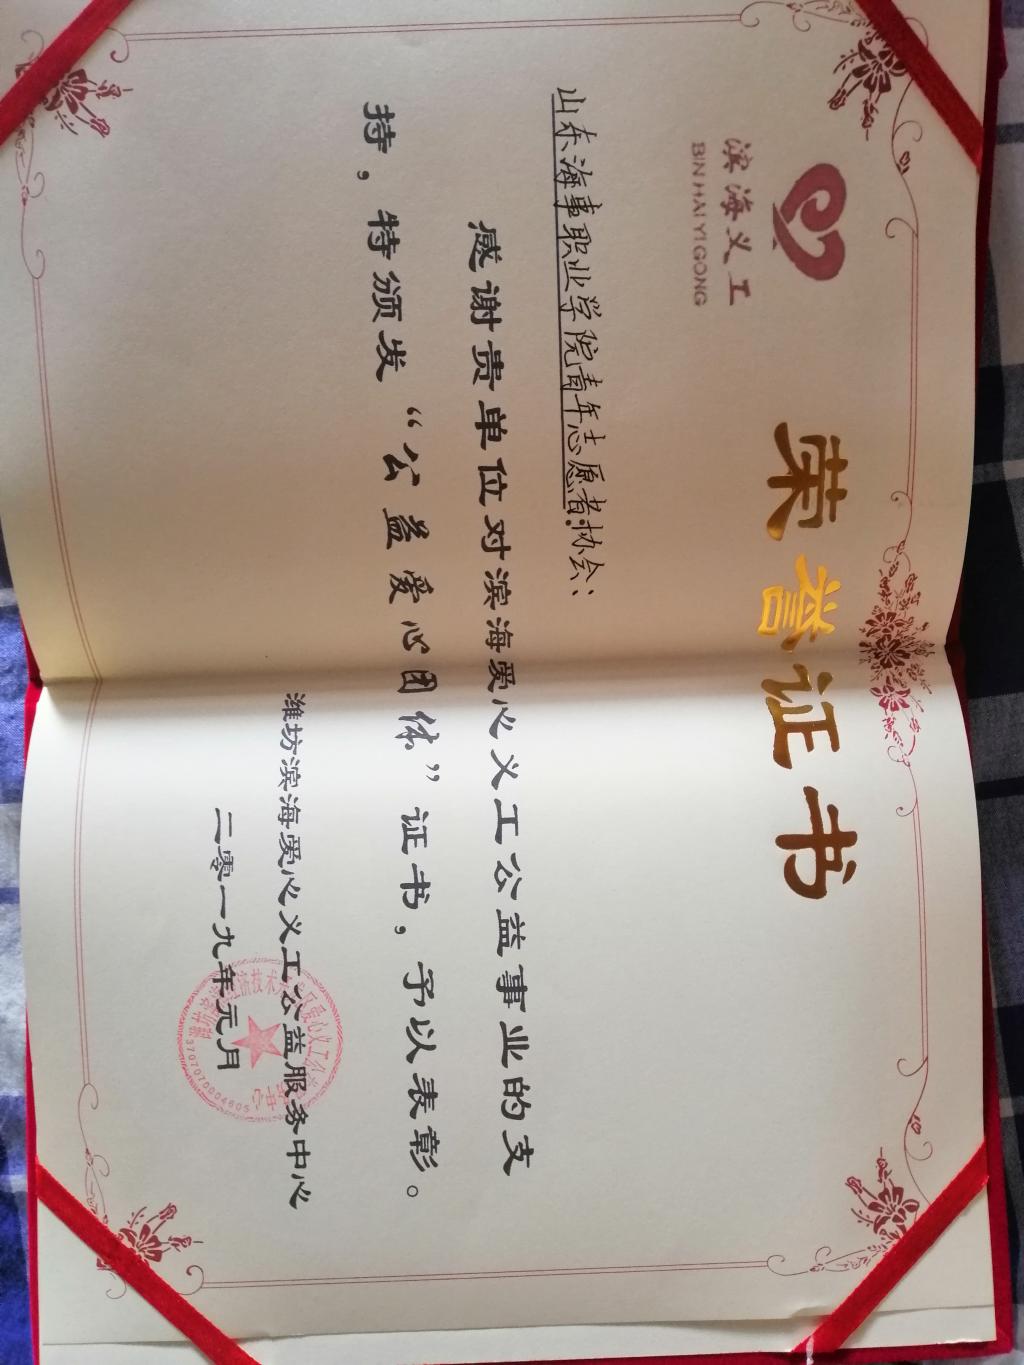 滨海义工
BIN HAI YI GONG
荣誉证书
山东海事职业学院青年志愿者协会：
感谢贵单位对滨海爱心义工公益事业的支
持，特颁发“公益爱心团体”证书，予以表彰。
潍坊滨海爱心义工公益服务中心
二零一九年元月
3707070004605